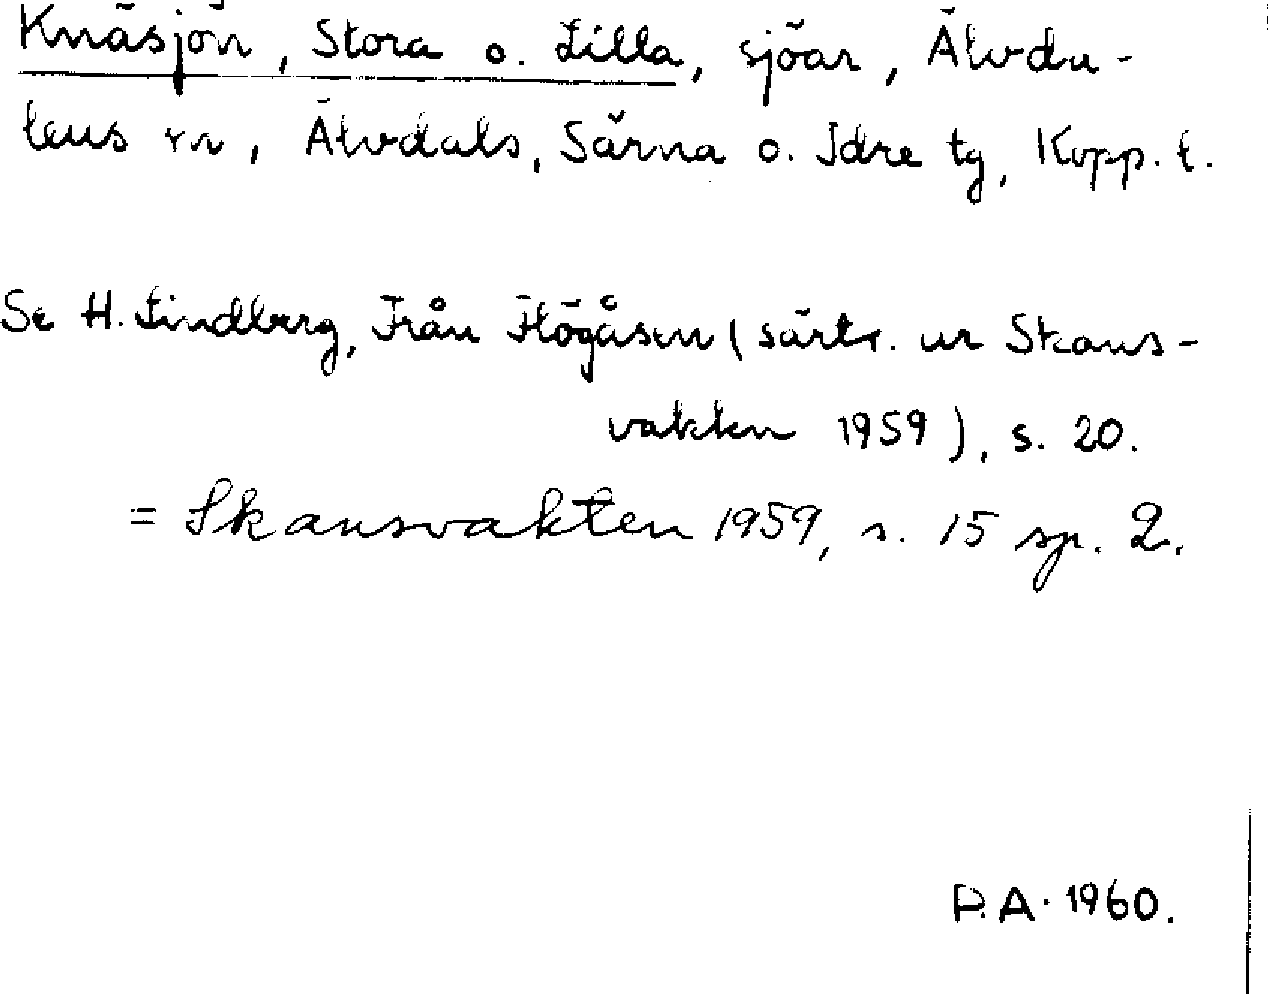 Knäsjön, Stora o. Lilla, sjöar, Älvda-
lens sn, Älvdals, Särna o. Idre tg, Kopp. l.
Se H. Lindberg, Från Högåsen (särtr. ur Skans-
vakten 1959), s. 20.
= Skansvakten 1959, s. 15 sp. 2.
P.A. 1960.